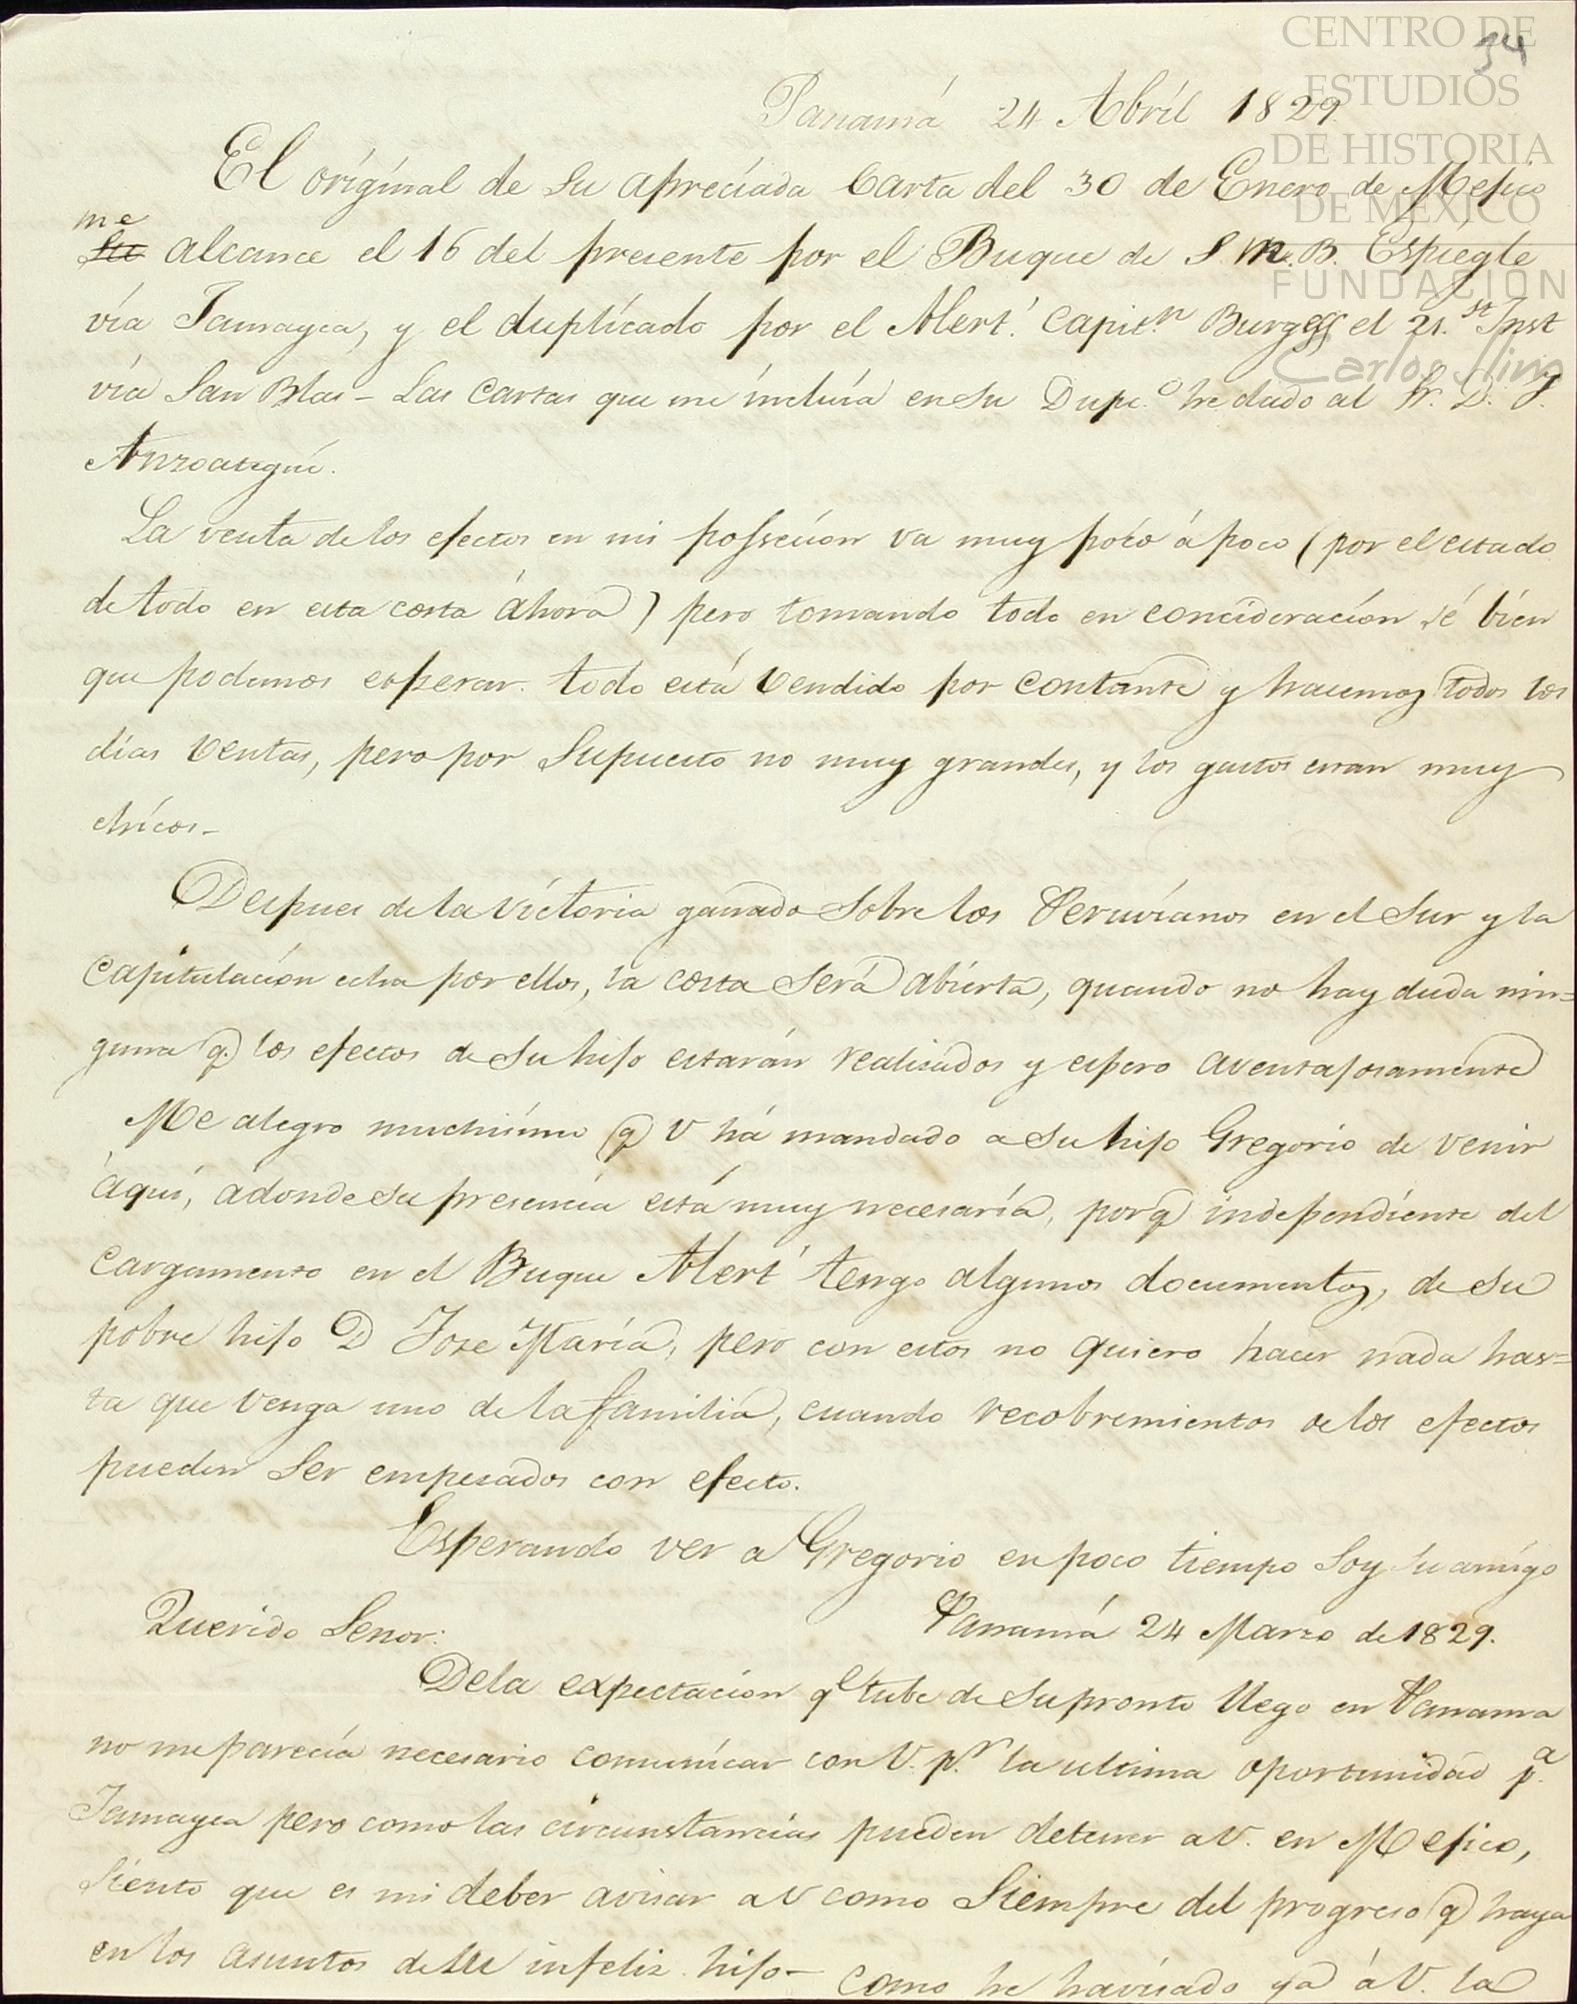 CENTRO DE
ESTUDIOS
DE HISTORIA
DE MEXICO
FUNDACION
Carlos Slim
34
Panamá 24 Abril 1829.
El original de su apreciada Carta del 30 de Enero de Mejico
me
su alcance el 16 del presente por el Buque de S. M. B. Espiegle
vía Jamayca, y el duplicado por el Alert. Capitn. Burgess el 21.st Inst
vía San Blas – Las Cartas que me incluía en su Dupc.o he dado al Sr. D. J.
Anzoategui.
La venta de los efectos en mi possecion va muy póco á poco (por el estado
de todo en esta costa áhora) pero tomando todo en concideracion sé bien
que podemos esperar. todo está Vendido por contante y hacemos todos los
días Ventas, pero por Supuesto no muy grandes, y los gastos eran muy
chicos –
Despues de la Victoria ganado Sobre los Peruvianos en el Sur y la
Capitulación echa por ellos, la costa Será abierta, quando no hay duda nin=
guna q. los efectos de Su hijo estarán realisados y espero aventajosamente
Me alegro muchísimo q V há mandado a Su hijo Gregorio de venir
áqui, adonde su presencia está muy necesaría, porq independiente del
Cargamento en el Buque Alert tengo algunos documentos, de Su
pobre hijo D Joze María, pero con estos no quiero hacer nada has=
ta que Venga uno de la familia, cuando recobremientos de los efectos
pueden Ser empesados con efecto.
Esperando ver a Gregorio en poco tiempo Soy Su amigo
Querido Senor:
Panamá 24 Marzo de 1829.
De la expectacion qe tube de Su pronto llego en Panama
no me parecía necesario comunicar con V. pr. la ultima oportunidad pa.
Jamayca pero como las circunstancias pueden detener a V. en Mejico,
Siento que es mi deber avisar a V como Siempre del progreso q haya
en los asuntos de su infeliz hijo – Como he havisado ya á V. la